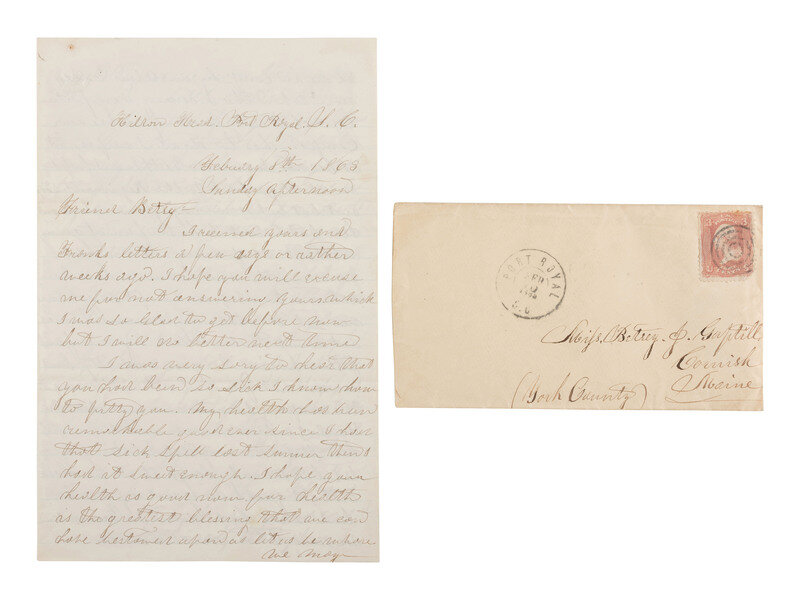 Hilton Head. Port Royal. S. C.
Febuary 8th 1863
Sunday afternoon
Friend Betsy
I received yours and
Franks letters a few days or rather
weeks ago. I hope you will excuse
me for not answering yours which
I was so glad to get before now
but I will do better next time
I was very sory to hear that
you had been so sick I know how
to pitty you. My health has been
remarkable good ever since I had
that sick spell last summer then I
had it sweet enough. I hope your
health is good now. for health
is the greatest blessing that we can
have bestowed upon us let us be where
we may
PORT ROYAL
S. C.
Miss. Betsey. J. Guptill
Cornish
Maine
(York County)